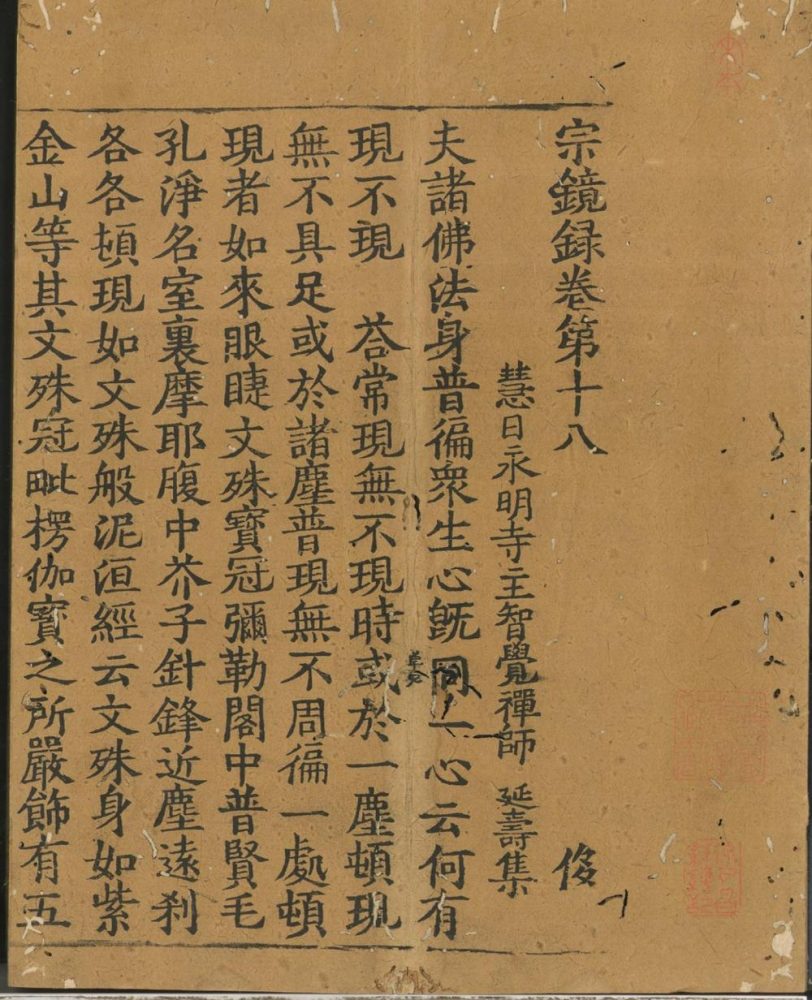 宗鏡録卷第十八 俊
慧日永明寺主智覺禪師 延壽集
夫諸佛法身普徧衆生心旣同一心云何有
現不現 荅常現無不現時或於一塵頓現
無不具足或於諸塵普現無不周徧一處頓
現者如來眼睫文殊寶冠彌勒閣中普賢毛
孔淨名室裏摩耶腹中芥子針鋒近塵遠刹
各各頓現如文殊般泥洹經云文殊身如紫
金山等其文殊冠毗楞伽寳之所嚴飾有五